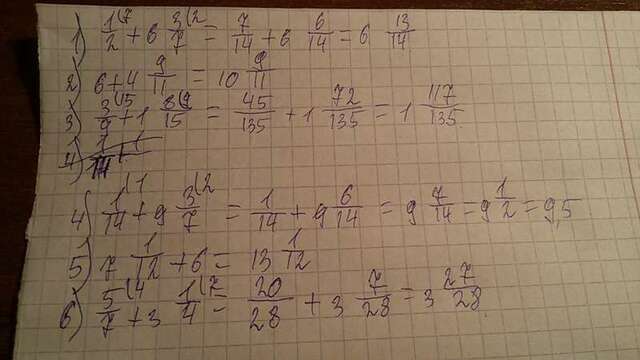 1) 1/2(7 + 6 3/7(2 = 7/14 + 6 6/14 = 6 13/14
2) 6 + 4 9/11 = 10 9/11
3) 3/9(15 + 1 8/15(9 = 45/135 + 1 72/135 = 1 117/135
4) 1/14(1 + 9 3/7(2 = 1/14 + 9 6/14 = 9 7/14 = 9 1/2 = 9,5
5) 7 1/12 + 6 = 13 1/12
6) 5/7(4 + 3 1/4(7 = 20/28 + 3 7/28 = 3 27/28